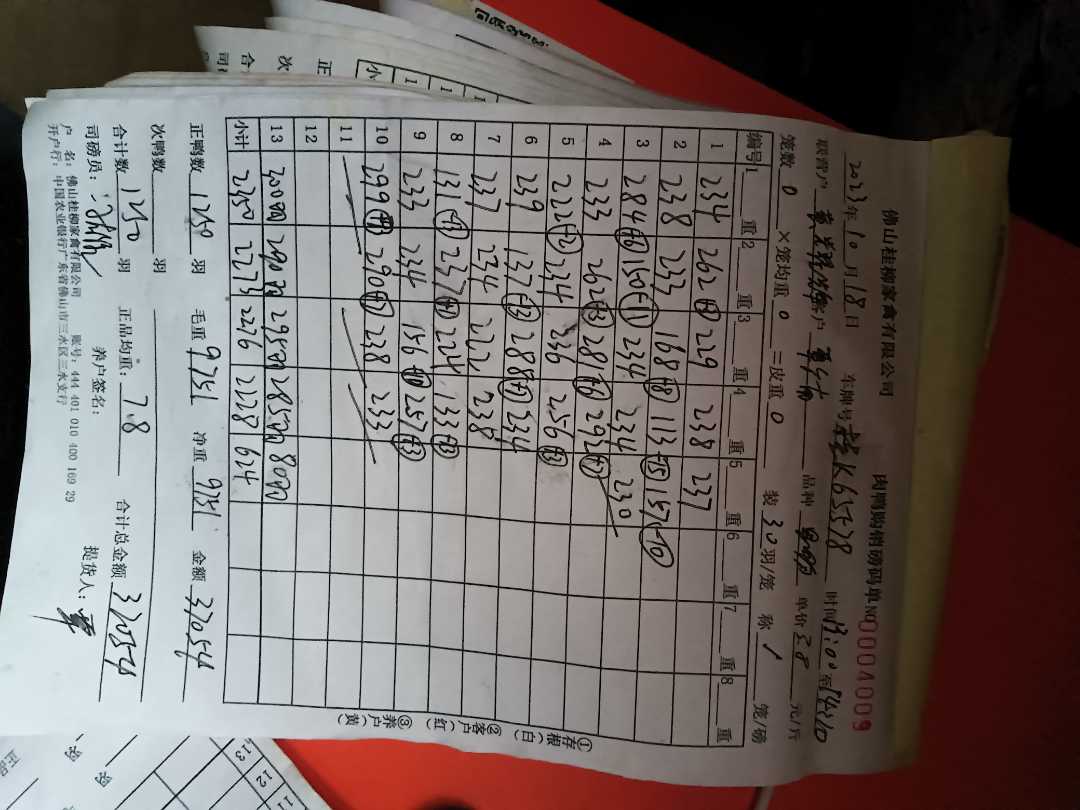 佛山桂柳家禽有限公司 肉鸭购销磅码单 NO 00004009
2023年10月18日 车牌号 K65578 时间13:00至14:30
联营户 客户 品种 单价3.8元/斤
笼数 0 ×笼均重 0 =皮重 0 装30羽/笼 称 笼/磅
编号 1 重 2 重 3 重 4 重 5 重 6 重 7 重 8 重
1 234 262 229 238 237
2 238 233 168 113 157
3 284 150 234 234 230
4 233 262 281 292
5 222 234 236 256
6 239 137 288 234
7 237 234 222 238
8 131 237 224 133
9 233 234 156 257
10 299 290 238 233
11
12
13 300只 290只 295只 285只 80只
小计 2350 2273 2276 2228 624
正鸭数 1250 羽 毛重 9751 净重 9751 金额 37054
次鸭数 羽
合计数 1250 羽 正品均重: 7.8 合计总金额 37054
司磅员: 养户签名: 提货人:
户 名: 佛山桂柳家禽有限公司 账号: 444 401 010 400 169 29
开户行: 中国农业银行广东省佛山市三水区三水支行
①存根(白) ②客户(红) ③养户(黄)